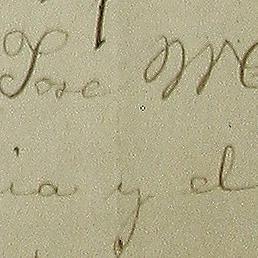 Jose M
ia y d